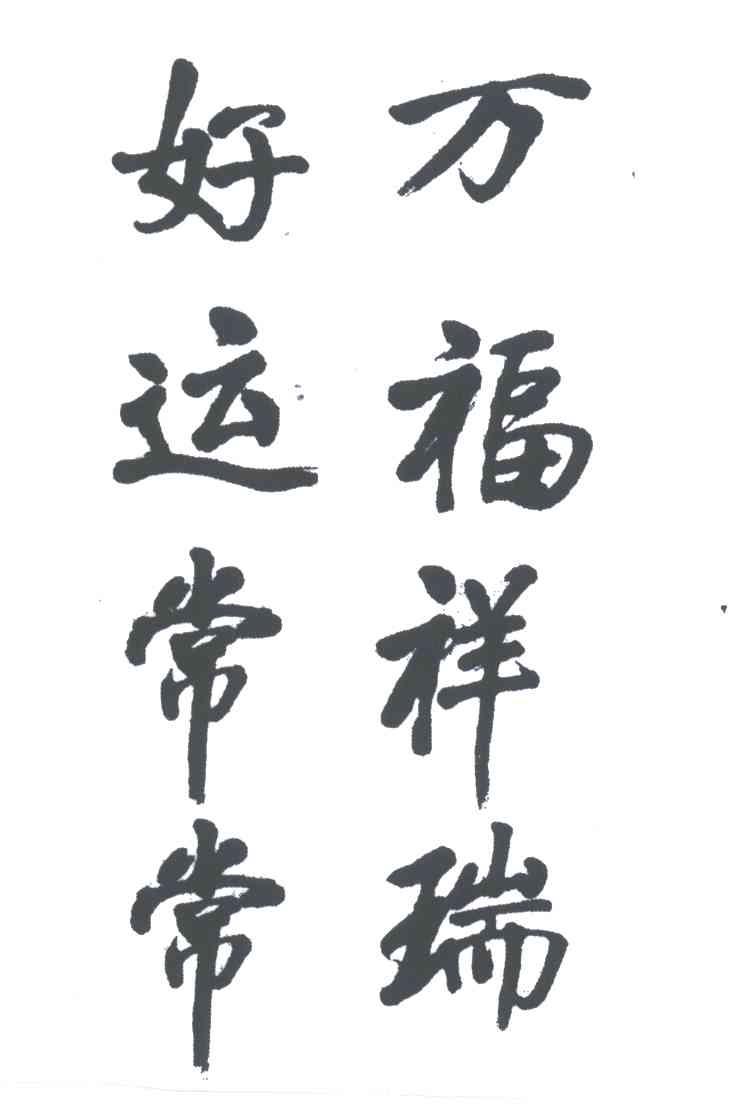 万福祥瑞
好运常常